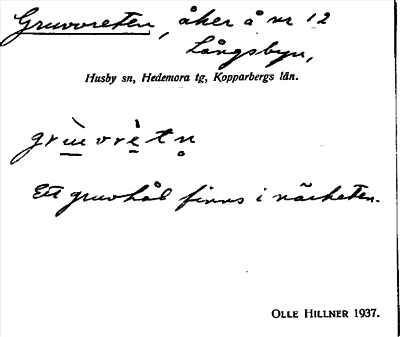 Gruvoreten, åker å nr 12
Långsbyn,
Husby sn, Hedemora tg, Kopparbergs län.
Ett gruvhål finns i närheten.
OLLE HILLNER 1937.